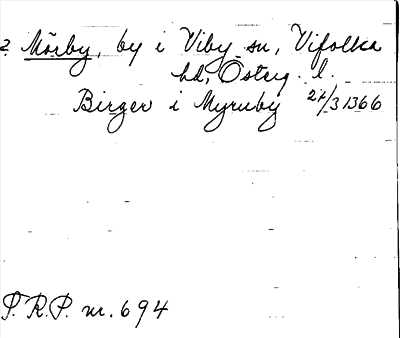 2 Mörby, by i Viby sn, Vifolka
hd, Österg. l.
Birger i Myruby 27/3 1366
S.R.P. nr. 694